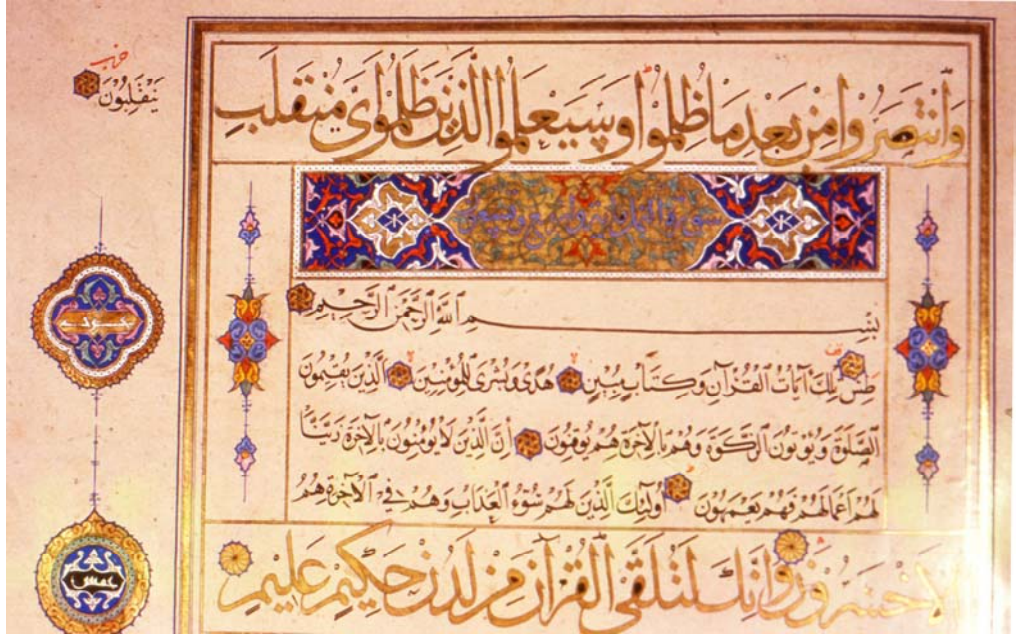 وَانتَصَرُوا مِن بَعْدِ مَا ظُلِمُوا وَسَيَعْلَمُ الَّذِينَ ظَلَمُوا أَيَّ مُنقَلَبٍ
حزب
يَنقَلِبُونَ
بِسْمِ اللَّهِ الرَّحْمَنِ الرَّحِيمِ
طس تِلْكَ آيَاتُ الْقُرْآنِ وَكِتَابٍ مُبِينٍ هُدًى وَبُشْرَى لِلْمُؤْمِنِينَ الَّذِينَ يُقِيمُونَ
الصَّلَوةَ وَيُؤْتُونَ الزَّكَوةَ وَهُمْ بِالْآخِرَةِ هُمْ يُوقِنُونَ إِنَّ الَّذِينَ لَا يُؤْمِنُونَ بِالْآخِرَةِ زَيَّنَّا
لَهُمْ أَعْمَالَهُمْ فَهُمْ يَعْمَهُونَ أُولَئِكَ الَّذِينَ لَهُمْ سُوءُ الْعَذَابِ وَهُمْ فِي الْآخِرَةِ هُمُ
الْأَخْسَرُونَ وَإِنَّكَ لَتُلَقَّى الْقُرْآنَ مِن لَّدُنْ حَكِيمٍ عَلِيمٍ
خمس